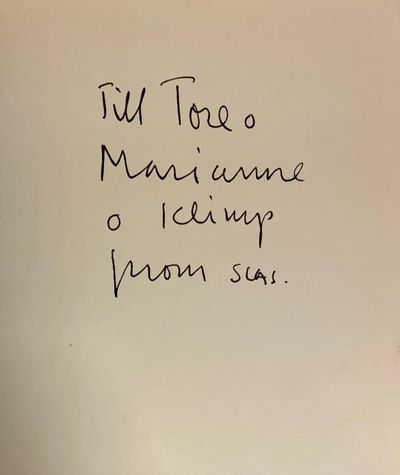 Till Tore o
Marianne
o Klimp
from SLAS.